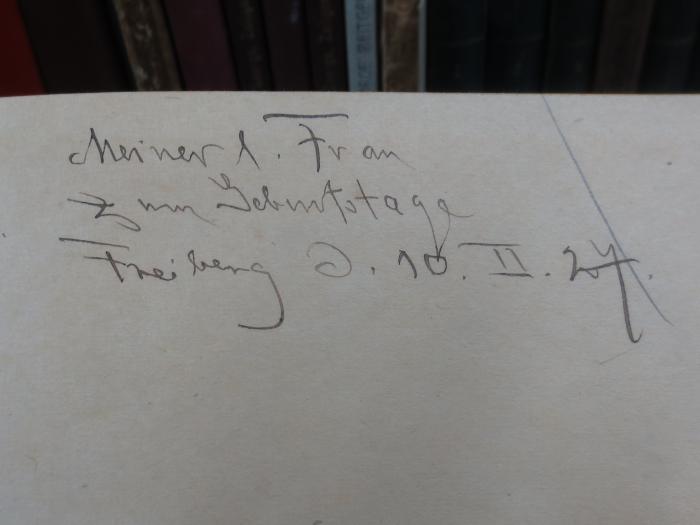 Meiner l. Frau
zum Geburtstage
Freiberg d. 10. II. 27.